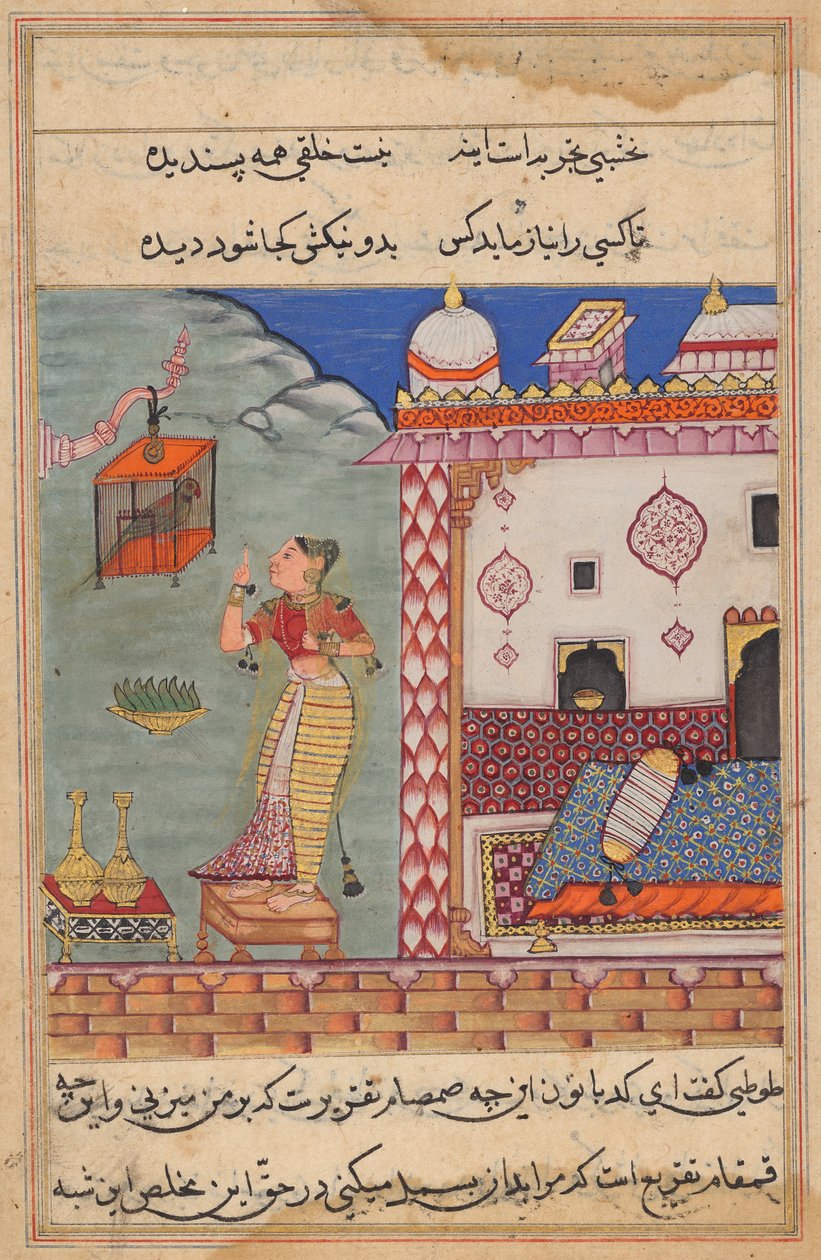 نخشبي تجربداست ايند نيست خلقي همه پسنديده
تا كسي را نيازمايد كس بد و نيكش كجا شود ديده
طوطي گفت اي كدبانون اين چه صمصام تقريرست كه بر من ميزني و اين چه
قمقام تقريع است كه مرا بدان بسمل ميكني در حقّ اين مخلص اين شبه